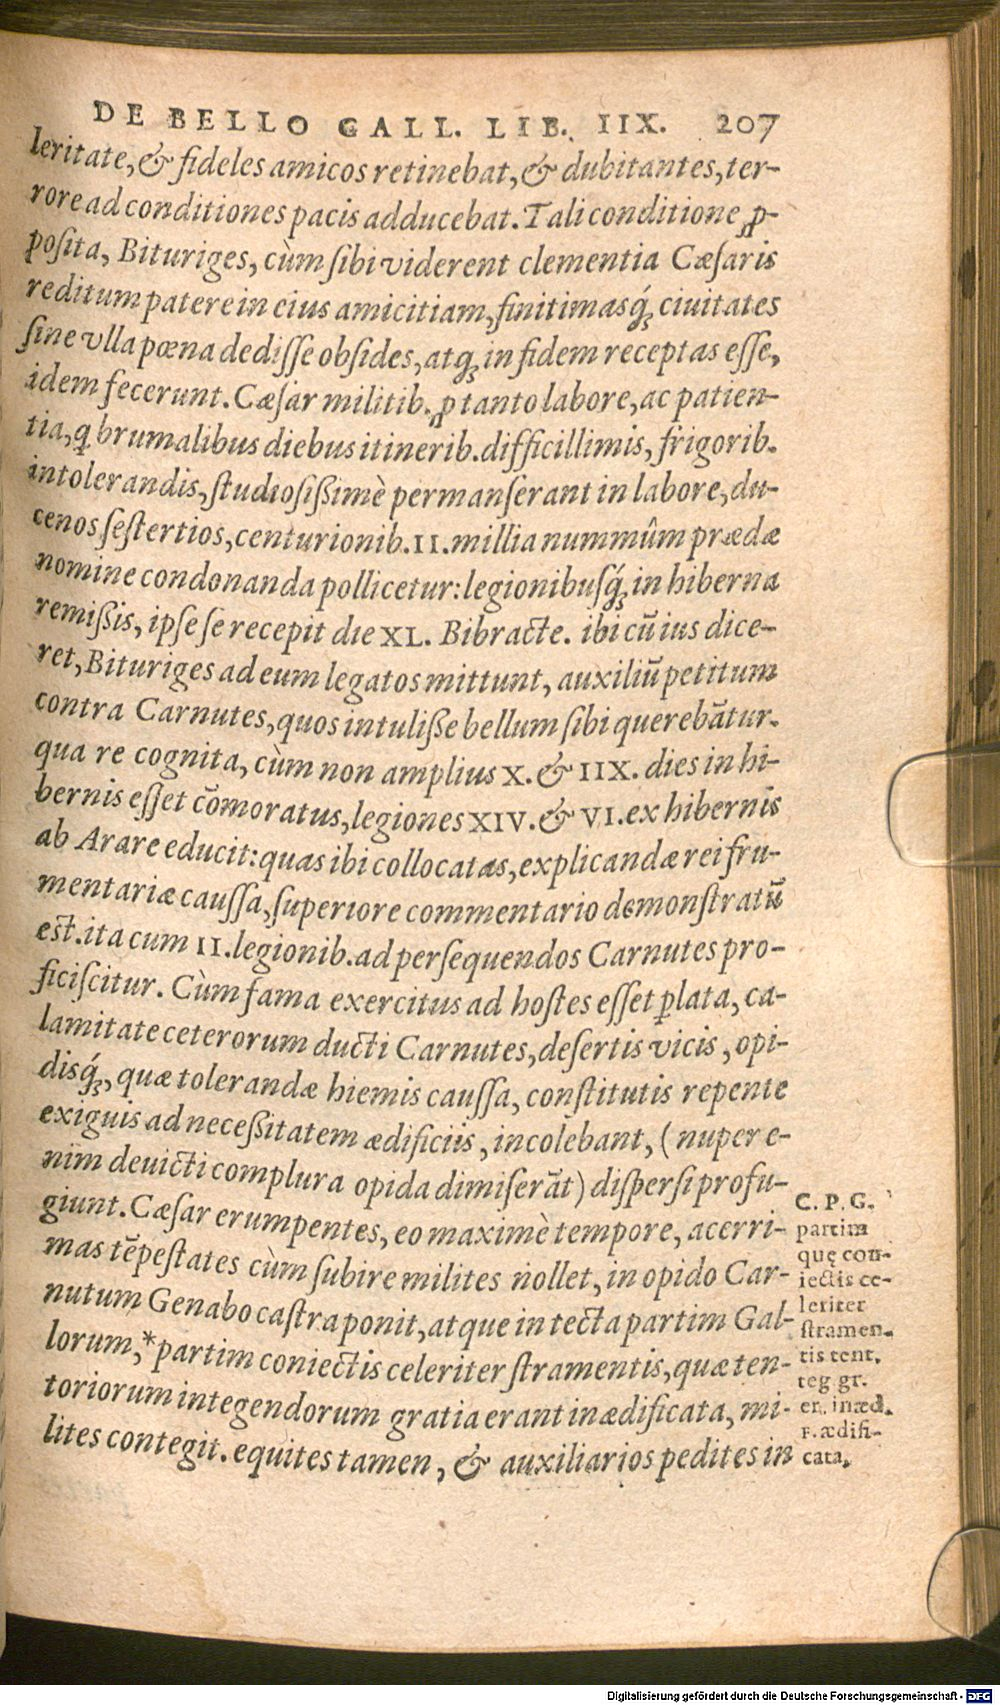 DE BELLO GALL. LIB. IIX. 207
leritate, & fideles amicos retinebat, & dubitantes, ter-
rore ad conditiones pacis adducebat. Tali conditione ꝓ-
posita, Bituriges, cùm sibi viderent clementia Cæsaris
reditum patere in eius amicitiam, finitimasq́; ciuitates
sine vlla pœna dedisse obsides, atq; in fidem receptas esse,
idem fecerunt. Cæsar militib. ꝓ tanto labore, ac patien-
tia, q brumalibus diebus itinerib. difficillimis, frigorib.
intolerandis, studiosißimè permanserant in labore, du-
cenos sestertios, centurionib. II. millia nummûm prædæ
nomine condonanda pollicetur: legionibusq́; in hiberna
remißis, ipse se recepit die XL. Bibracte. ibi cū ius dice-
ret, Bituriges ad eum legatos mittunt, auxiliū petitum
contra Carnutes, quos intuliße bellum sibi querebātur.
qua re cognita, cùm non amplius X. & IIX. dies in hi-
bernis esset cōmoratus, legiones XIV. & VI. ex hibernis
ab Arare educit: quas ibi collocatas, explicandæ rei fru-
mentariæ caussa, superiore commentario demonstratū
est. ita cum II. legionib. ad persequendos Carnutes pro-
ficiscitur. Cùm fama exercitus ad hostes esset ꝑlata, ca-
lamitate ceterorum ducti Carnutes, desertis vicis, opi-
disq́;, quæ tolerandæ hiemis caussa, constitutis repente
exiguis ad neceßitatem ædificiis, incolebant, (nuper e-
nim deuicti complura opida dimiserāt) dispersi profu-
giunt. Cæsar erumpentes, eo maximè tempore, acerri-
mas tēpestates cùm subire milites nollet, in opido Car-
nutum Genabo castra ponit, atque in tecta partim Gal-
lorum, *partim coniectis celeriter stramentis, quæ ten-
toriorum integendorum gratia erant inædificata, mi-
lites contegit. equites tamen, & auxiliarios pedites in
C. P. G.
partim
quę con-
iectis ce-
leriter
stramen-
tis tent.
teg gr.
er. inæd.
F. ædifi-
cata.
Digitalisierung gefördert durch die Deutsche Forschungsgemeinschaft - DFG